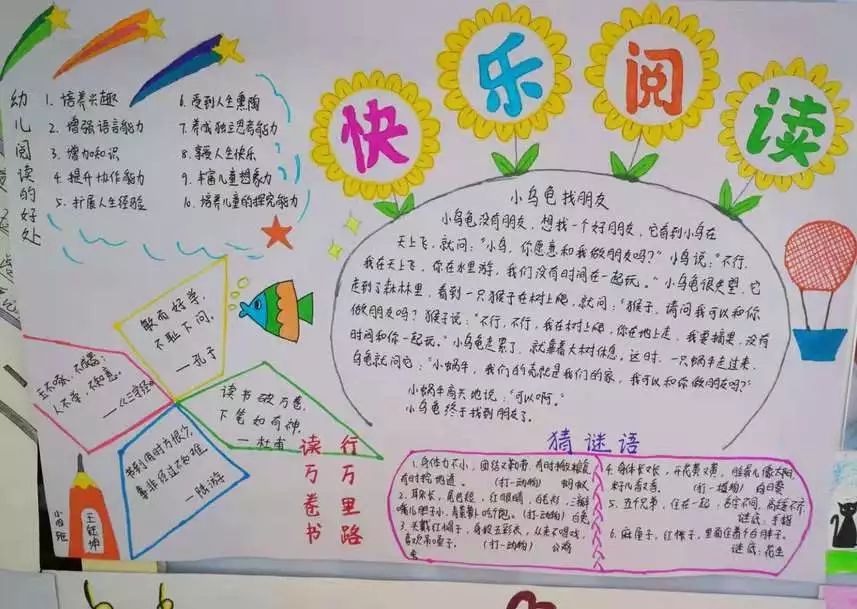 快乐阅读
幼儿阅读的好处
1. 培养兴趣
2. 增强语言能力
3. 增加知识
4. 提升协作能力
5. 扩展人生经验
6. 受到人生熏陶
7. 养成独立思考能力
8. 享受人生快乐
9. 丰富儿童想象力
10. 培养儿童的探究能力
小乌龟找朋友
小乌龟没有朋友，想找一个好朋友，它看到小鸟在
天上飞，就问：“小鸟，你愿意和我做朋友吗？”小鸟说：“不行，
我在天上飞，你在水里游，我们没有时间在一起玩。”小乌龟很失望，它
走到了森林里，看到一只猴子在树上爬，就问：“猴子，请问我可以和你
做朋友吗？猴子说：“不行，不行，我在树上爬，你在地上走，我要摘果，没有
时间和你一起玩。”小乌龟走累了，就靠着大树休息。这时，一只蜗牛走过来，
乌龟就问它：“小蜗牛，我们的壳就是我们的家，我可以和你做朋友吗？”
小蜗牛高兴地说：“可以啊。”
小乌龟终于找到朋友了。
敏而好学，
不耻下问。
—孔子
玉不琢，不成器；
人不学，不知意。
—《三字经》
读书破万卷，
下笔如有神。
—杜甫
书到用时方恨少，
事非经过不知难
—陆游
读万卷书
行万里路
小四班
王钰坤
猜谜语
1. 身体力不小，团结又勤劳，有时搬粮食
有时挖地道。（打一动物） 蚂蚁
2. 耳朵长，尾巴短，红眼睛，白毛衫，三瓣
嘴儿胆子小，青菜萝卜吃个饱。（打一动物）白兔
3. 头戴红帽子，身披五彩衣，从来不唱戏，
喜欢吊嗓子。（打一动物） 公鸡
4. 身体长又长，开花黄又黄，脸盘儿像太阳，
籽儿香又香。（打一植物）向日葵
5. 五个兄弟，住在一起，名字不同，高矮不齐
谜底：手指
6. 麻屋子，红帐子，里面住着个白胖子。
谜底：花生